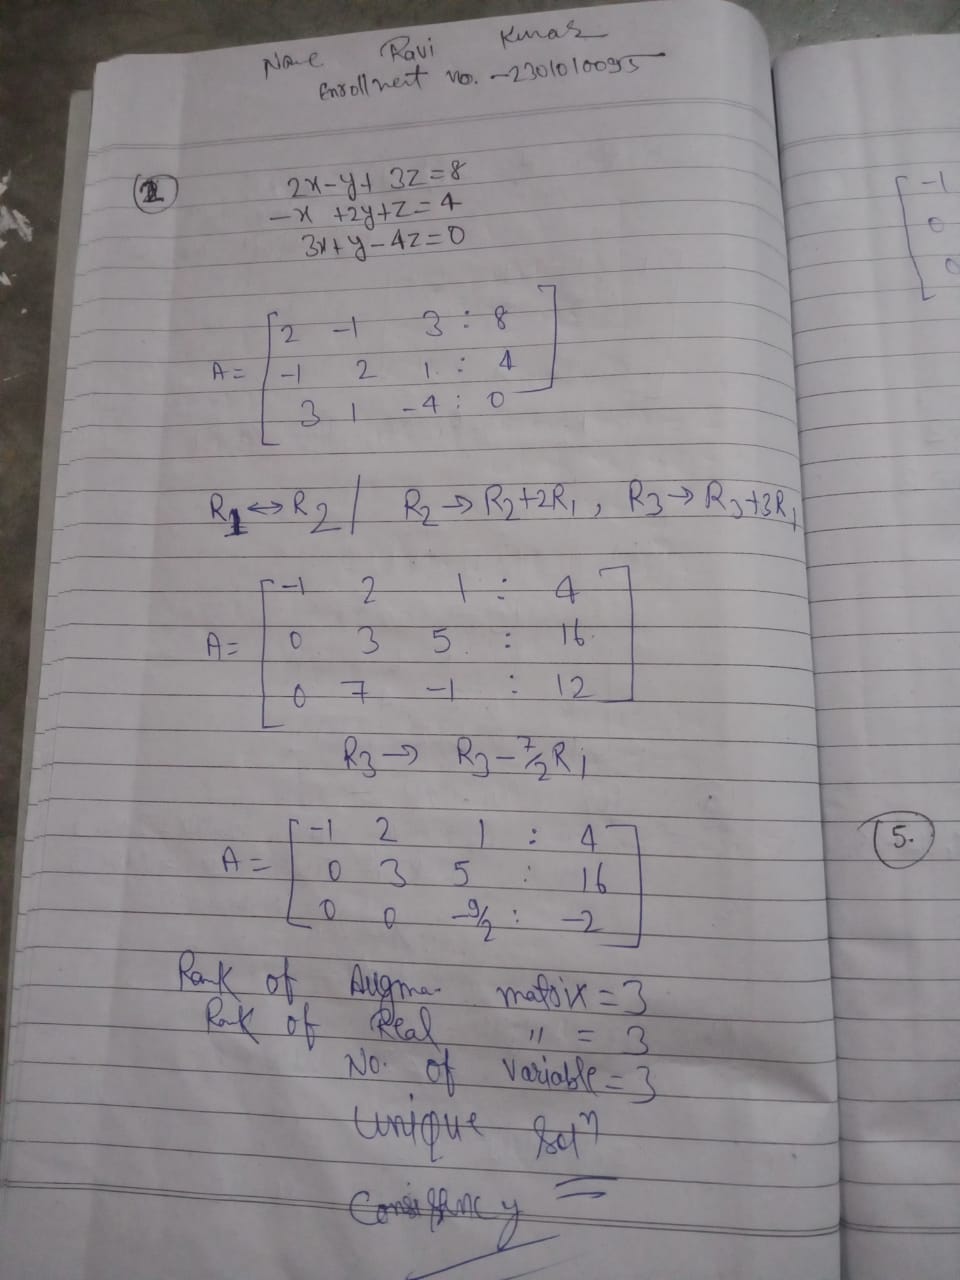 Name Ravi Kumar
Enrollment no. -2301010095
1
2x-y+3z=8
-x+2y+z=4
3x+y-4z=0
2 -1 3 : 8
A= -1 2 1 : 4
3 1 -4 : 0
R1↔R2 / R2→R2+2R1, R3→R3+3R1
-1 2 1 : 4
A= 0 3 5 : 16
0 7 -1 : 12
R3→ R3-7/2R1
-1 2 1 : 4
A= 0 3 5 : 16
0 0 -9/2 : -2
Rank of Augma- matrix=3
Rank of Real " = 3
No. of variable=3
Unique Solⁿ
-1
0
0
5.